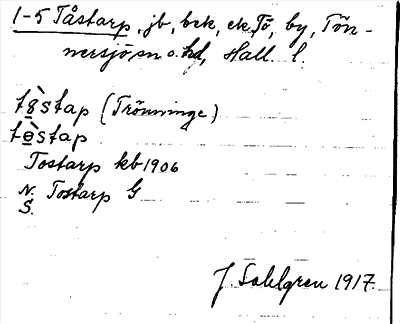 1-5 Tåstarp, jb, bck, ek Tö, by, Tön-
nersjö sn o. hd, Hall. l.
tǫ̀stap (Trönninge)
tò̱stap
Tostarp kb 1906
N. Tostarp G
S.
J. Sahlgren 1917.